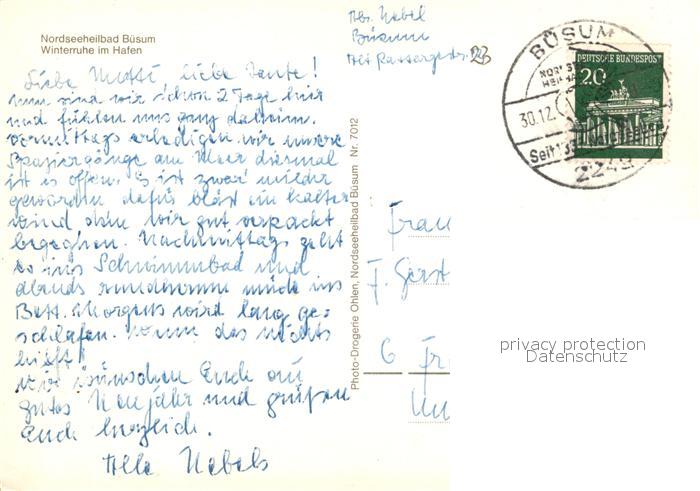 Nordseeheilbad Büsum
Winterruhe im Hafen
Abs. Nebel
Büsum
23
Liebe Mutti, liebe Tante!
Nun sind wir schon 2 Tage hier
und fühlen uns ganz daheim.
Vormittags erledigen wir unsere
Spaziergänge am Meer diesmal
ist es offen. Es ist zwar milder
geworden dafür bläst ein kalter
Wind dem wir gut verpackt
begegnen. Nachmittags geht
es ins Schwimmbad und
abends rundherum müde ins
Bett. Morgens wird lang ge-
schlafen. Wenn das nichts
hilft!
Wir wünschen Euch ein
gutes Neujahr und grüßen
Euch herzlich.
Alle Nebels
Photo-Drogerie Ohlen, Nordseeheilbad Büsum Nr. 7012
BÜSUM
30.12.
Seit
2242
DEUTSCHE BUNDESPOST
20
Frau
6
privacy protection
Datenschutz